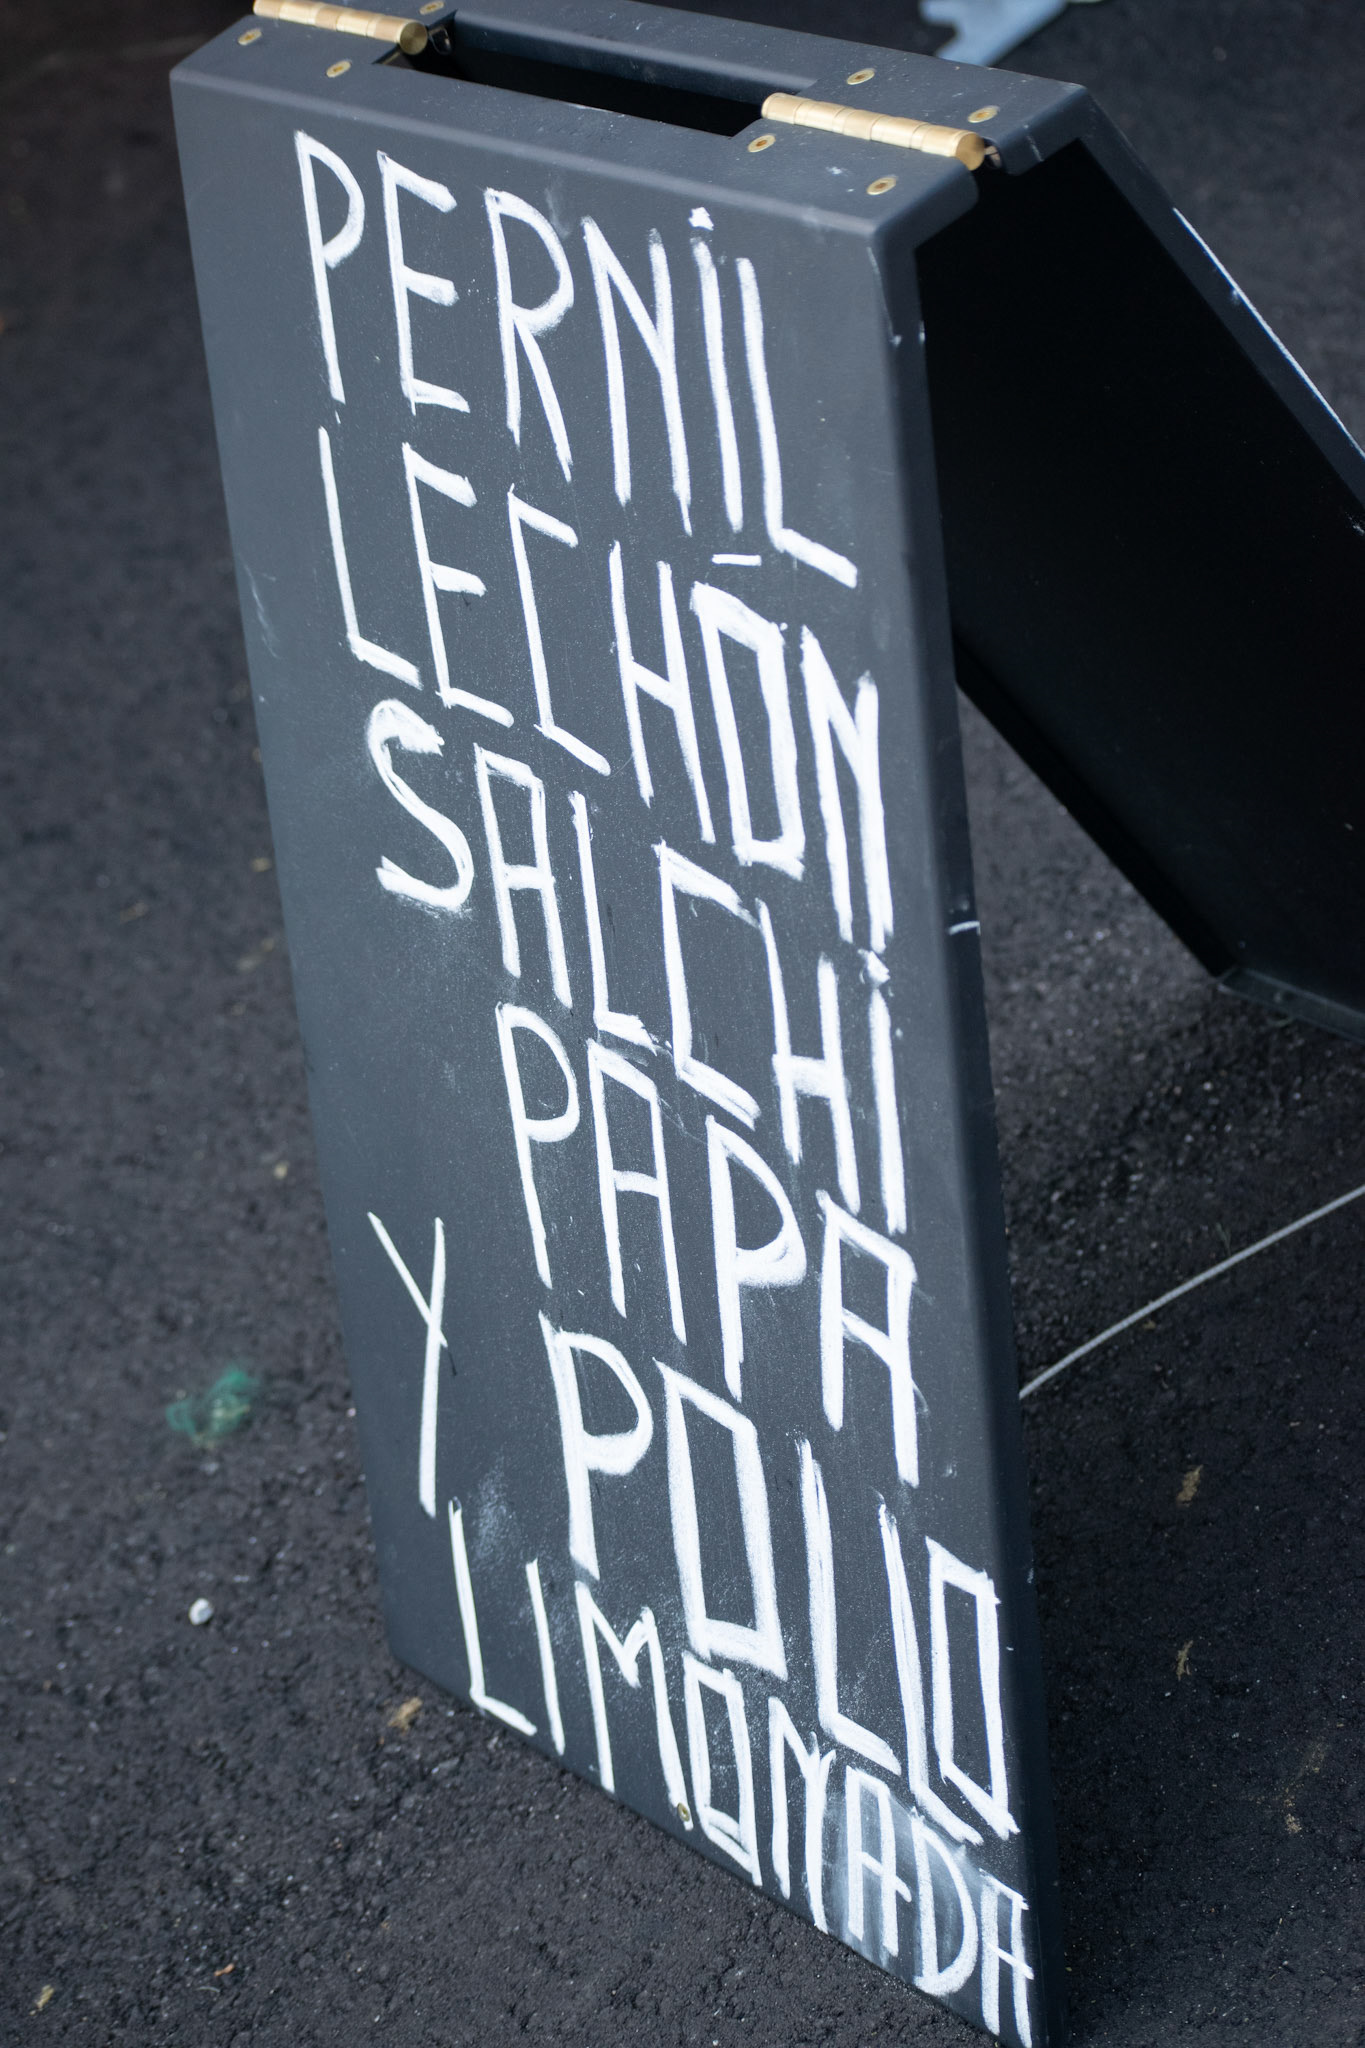 PERNiL
LECHÓN
SALCHi
PAPA
Y POLLO
LIMONADA